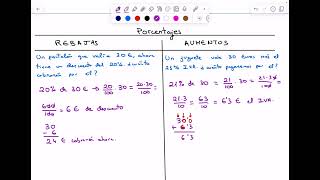 Porcentajes
REBAJAS
Un pantalón que valía 30€, ahora
tiene un descuento del 20%. ¿Cuánto
cobrarán por él?
20% de 30€ → 20/100 · 30 = 20·30/100
600/100 = 6€ de descuento
30
- 6
24 € cobrarán ahora.
AUMENTOS
Un juguete vale 30 euros más el
21% IVA. ¿Cuánto pagaremos por él?
21% · 30 = 21/100 · 30 = 21·30/100
21·3/10 = 63/10 = 6'3 € el IVA.
30 0
+ 6'3
6'3